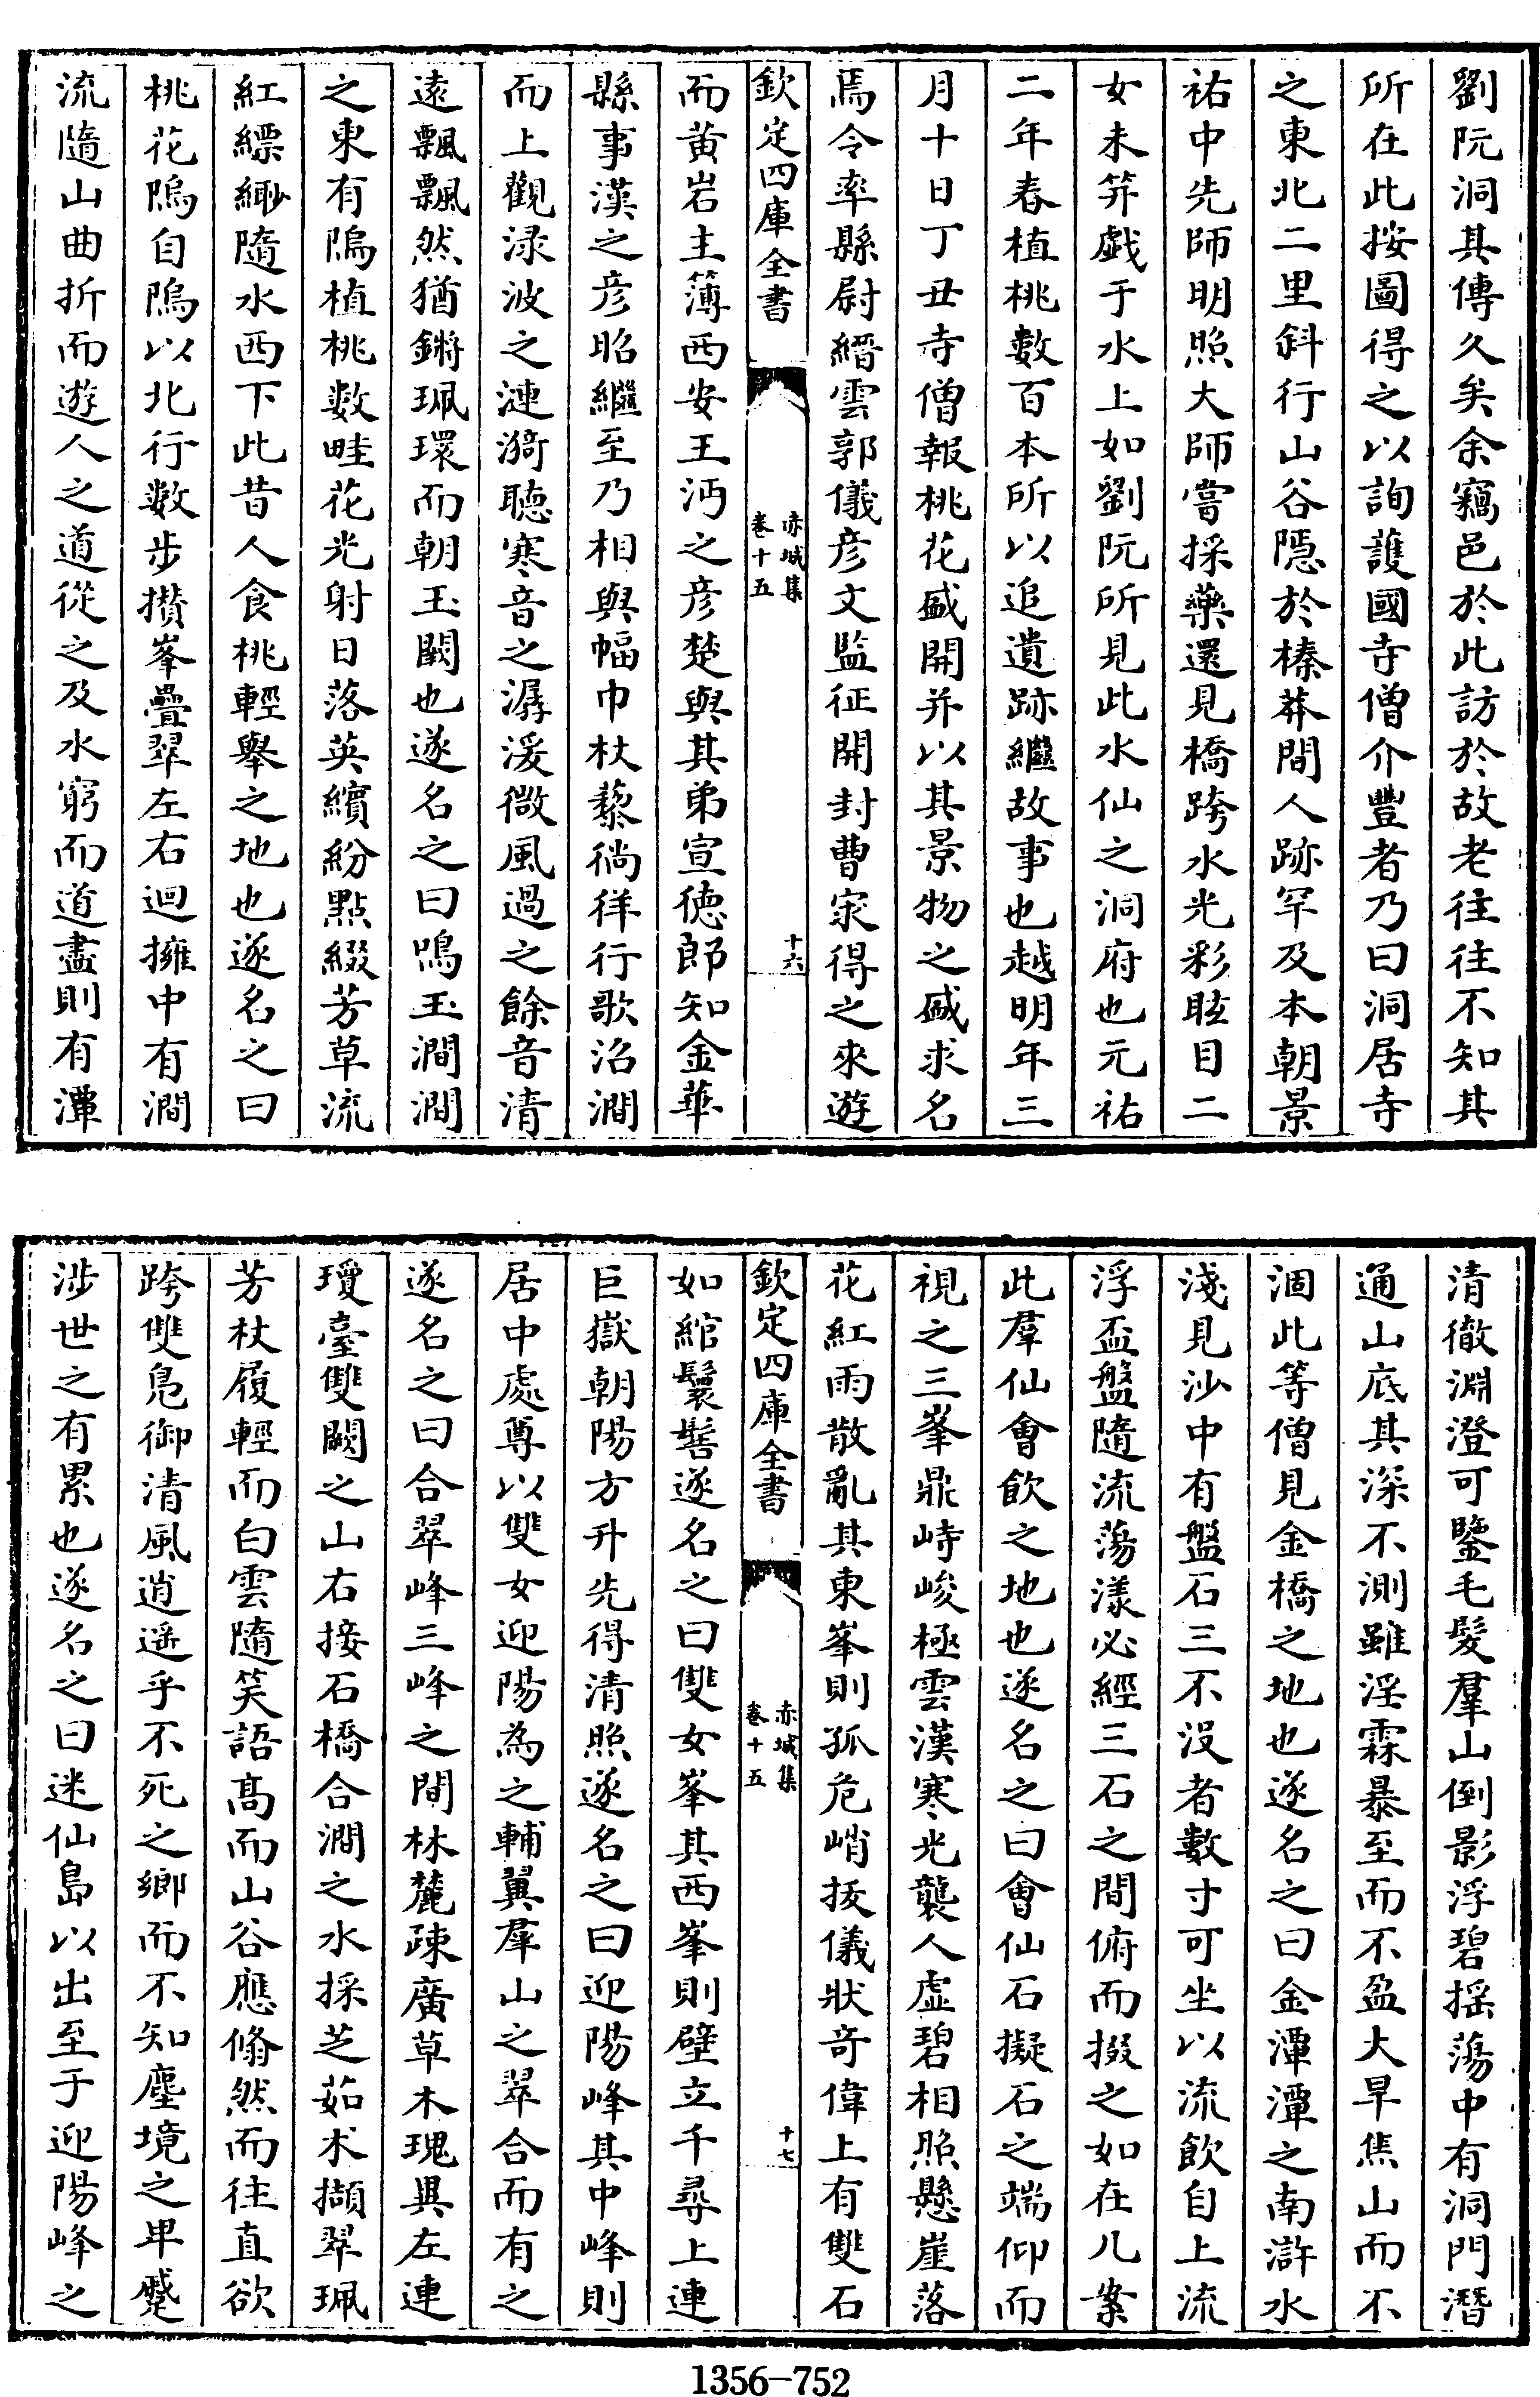 劉阮洞其傳久矣余竊邑於此訪於故老往往不知其
所在此按圖得之以詢護國寺僧介豐者乃曰洞居寺
之東北二里斜行山谷隠於榛莽間人跡罕及本朝景
祐中先師明照大師嘗採藥還見橋跨水光彩眩目二
女未笄戯于水上如劉阮所見此水仙之洞府也元祐
二年春植桃數百本所以追遺跡繼故事也越明年三
月十日丁丑寺僧報桃花盛開并以其景物之盛求名
焉令率縣尉縉雲郭儀彦文監征開封曹宻得之來遊
欽定四庫全書
赤城集
卷十五
十六
而黄岩主簿西安王沔之彦楚與其弟宣徳郎知金華
縣事漢之彦昭繼至乃相與幅巾杖藜徜徉行歌㳂澗
而上觀渌波之漣漪聴寒音之潺湲微風過之餘音清
逺飄飄然猶鏘珮環而朝玉闕也遂名之曰鳴玉澗澗
之東有隝植桃数畦花光射日落英繽紛點綴芳草流
紅縹緲隨水西下此昔人食桃輕舉之地也遂名之曰
桃花隝自隝以北行数步攢峯疊翠左右迴擁中有澗
流隨山曲折而遊人之道從之及水窮而道盡則有潭
清徹淵澄可鑒毛髮羣山倒影浮碧揺蕩中有洞門潛
通山底其深不測雖淫霖暴至而不盈大旱焦山而不
涸此等僧見金橋之地也遂名之曰金潭潭之南滸水
淺見沙中有盤石三不没者數寸可坐以流飲自上流
浮盃盤隨流蕩漾必經三石之間俯而掇之如在几案
此羣仙會飲之地也遂名之曰會仙石擬石之端仰而
視之三峯鼎峙峻極雲漢寒光襲人虚碧相照懸崖落
花紅雨散亂其東峯則孤危峭㧞儀狀奇偉上有雙石
欽定四庫全書
赤城集
卷十五
十七
如綰鬟髻遂名之曰雙女峯其西峯則壁立千尋上連
巨嶽朝陽方升先得清照遂名之曰迎陽峰其中峰則
居中處尊以雙女迎陽為之輔翼羣山之翠合而有之
遂名之曰合翠峰三峰之間林麓疎廣草木瑰異左連
瓊臺雙闕之山右接石橋合澗之水採芝茹术擷翠珮
芳杖履輕而白雲隨笑語髙而山谷應翛然而往直欲
跨雙鳬御清風逍遥乎不死之鄉而不知塵境之卑蹙
渉世之有累也遂名之曰迷仙島以出至于迎陽峰之
1356-752